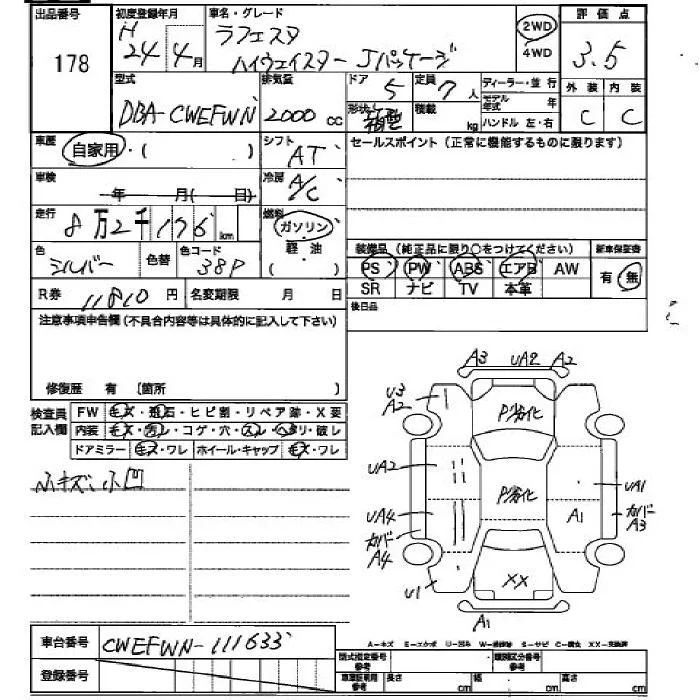 出品番号 178
初度登録年月 H 24年 4月
車名・グレード ラフェスタ
ハイウェイスター Jパッケージ
2WD
4WD
評価点 3.5
外装 内装
C C
型式 DBA-CWEFWN
排気量 2000 cc
ドア 5
形状
定員 7人
積載 kg
ディーラー・並行
モデル年式 年
ハンドル 左・右
車歴 自家用・( )
シフト AT
セールスポイント (正常に機能するものに限ります)
車検 年 月( 日)
冷房 A/C
走行 8万2千176 km
燃料 ガソリン
軽油
( )
色 シルバー 色替 色コード 38P
装備品 (純正品に限り○をつけてください) 新車保証書
PS PW ABS エアB AW
SR ナビ TV 本革
有・無
R券 11810円 名変期限 月 日
後日品
注意事項申告欄 (不具合内容等は具体的に記入して下さい)
修復歴 有 [箇所 )
検査員記入欄
FW キズ・飛石・ヒビ割・リペア跡・X要
内装 キズ・汚レ・コゲ・穴・スレ・ヘタリ・破レ
ドアミラー キズ・ワレ ホイール・キャップ キズ・ワレ
小キズ、小凹
A3 UA2 A2
U3
A2
P劣化
UA2
UA1
P劣化
UA4
A1
カバーA3
カバーA4
U1
XX
A1
車台番号 CWEFWN-111633
登録番号
A-キズ E-エクボ U-凹み W-補修跡 S-サビ C-腐食 XX-交換済
型式指定番号 参考
類別区分番号 参考
車庫証明用 参考 長さ cm 幅 cm 高さ cm